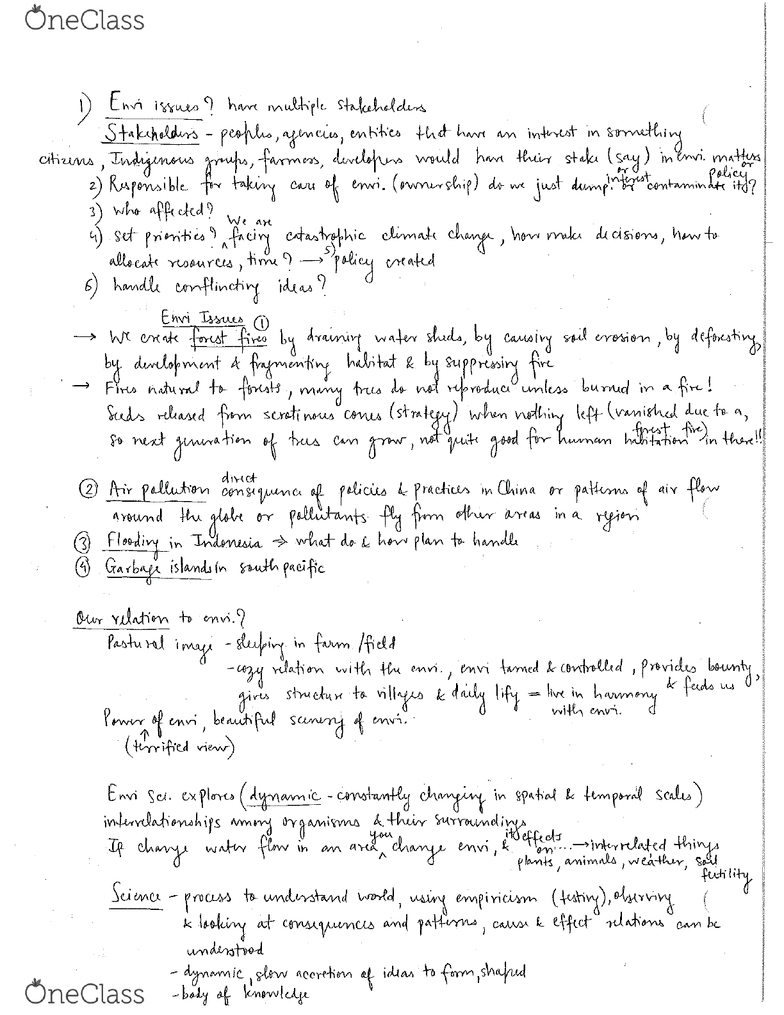 OneClass
1) Envi issues? have multiple stakeholders
Stakeholders - peoples, agencies, entities that have an interest in something
citizens, Indigenous groups, farmers, developers would have their stake (say) in envi. matters
or interest or policy
2) Responsible for taking care of envi. (ownership) do we just dump or contaminate it?
3) who affected?
4) Set priorities? We are facing catastrophic climate change, how make decisions, how to
allocate resources, time? → 5) policy created
6) handle conflincting ideas?
Envi Issues ①
→ We create forest fires by draining water sheds, by causing soil erosion, by deforesting,
by development & fragmenting habitat & by suppressing fire
→ Fires natural to forests, many trees do not reproduce unless burned in a fire!
Seeds released from serotinous cones (strategy) when nothing left (vanished due to a
forest fire)
so next generation of trees can grow, not quite good for human habitation in there!!
② Air pollution direct consequence of policies & practices in China or patterns of air flow
around the globe or pollutants fly from other areas in a region
③ Flooding in Indonesia → what do & how plan to handle
④ Garbage islands in south pacific
Our relation to envi.?
Pastural image - sleeping in farm/field
- cozy relation with the envi., envi tamed & controlled, provides bounty,
& feeds us
gives structure to villages & daily lify = live in harmony
with envi.
Power of envi, beautiful scenery of envi.
↑
(terrified view)
Envi Sci. explores (dynamic - constantly changing in spatial & temporal scales)
interrelationships among organisms & their surroundings
If you change water flow in an area, change envi, & its effects on.... → interrelated things
plants, animals, weather, soil
futility
Science - process to understand world, using empiricism (testing), observing
& looking at consequences and patterns, cause & effect relations can be
understood
- dynamic, slow accretion of ideas to form, shaped
- body of knowledge
OneClass